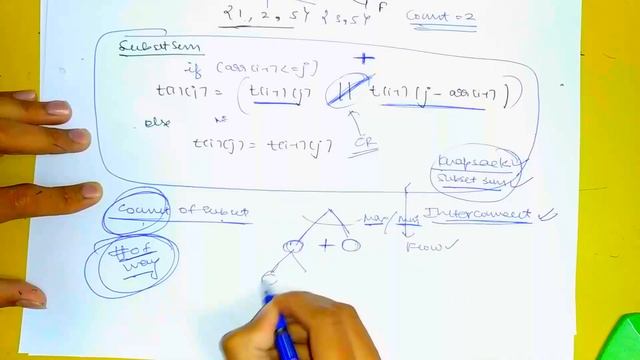 {1, 2, 5} {3,5} F
Count = 2
Subset sum
+
if (arr[i-1] <= j)
t[i][j] = (t[i-1][j] || t[i-1][j - arr[i-1]])
else
t[i][j] = t[i-1][j]
OR
Knapsack
Subset sum
Count of subset
max/min
Interconnect
# of way
+
Flow